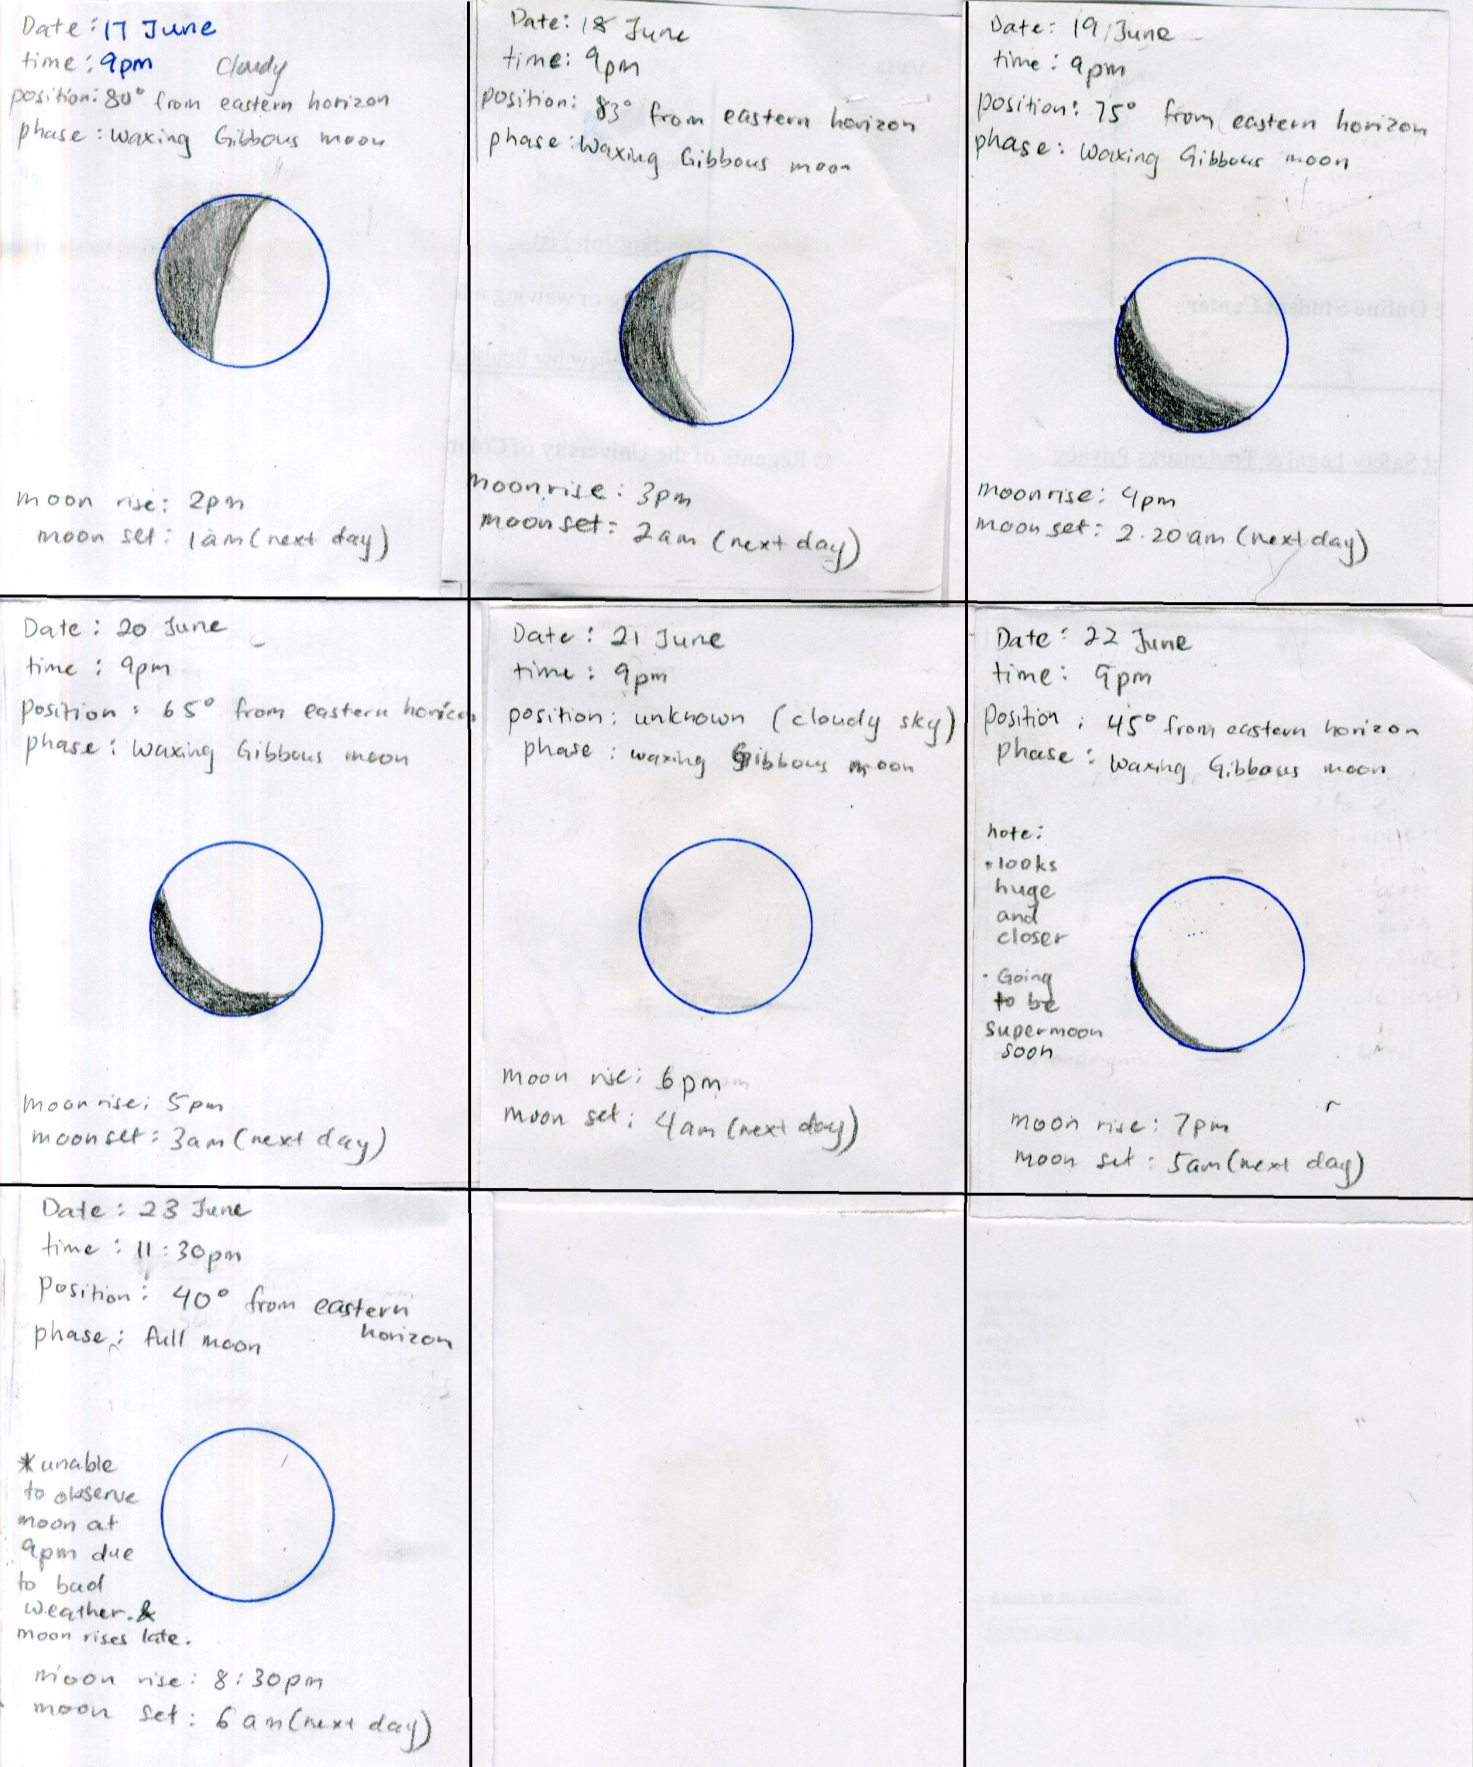 Date: 17 June
time: 9pm cloudy
position: 80° from eastern horizon
phase: waxing Gibbous moon
moon rise: 2pm
moon set: 1am (next day)
Date: 18 June
time: 9pm
position: 83° from eastern horizon
phase: Waxing Gibbous moon
moonrise: 3pm
moonset: 2am (next day)
Date: 19 June
time: 9pm
position: 75° from eastern horizon
phase: Waxing Gibbous moon
moonrise: 4pm
moonset: 2.20am (next day)
Date: 20 June
time: 9pm
position: 65° from eastern horizon
phase: Waxing Gibbous moon
moonrise: 5pm
moonset: 3am (next day)
Date: 21 June
time: 9pm
position: unknown (cloudy sky)
phase: waxing Gibbous moon
moon rise: 6pm
moon set: 4am (next day)
Date: 22 June
time: 9pm
Position: 45° from eastern horizon
phase: Waxing Gibbous moon
note:
• looks
huge
and
closer
• Going
to be
supermoon
soon
moon rise: 7pm
moon set: 5am (next day)
Date: 23 June
time: 11:30pm
Position: 40° from eastern
horizon
phase: full moon
* unable
to observe
moon at
9pm due
to bad
weather. &
moon rises late.
moon rise: 8:30pm
moon set: 6am (next day)